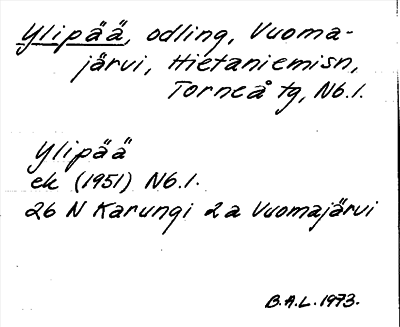 Ylipää, odling, Vuoma-
järvi, Hietaniemisn,
Torneå tg, N6.1.
Ylipää
ek (1951) N6.1.
26 N Karungi 2a Vuomajärvi
B.A.L. 1973.